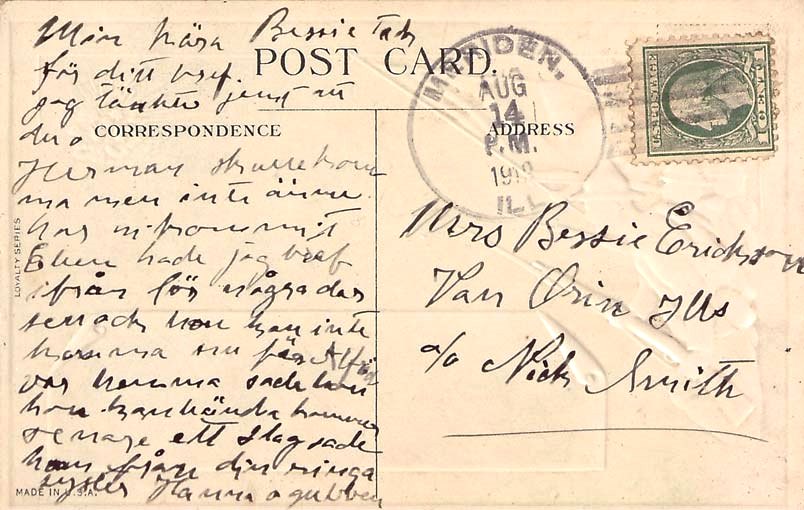 Min kära Bessie Tak
för ditt bref.
jag tänkte just att
du o
Herman skulle kom
ma men inte ännu
har ni kommit
Ellen hade jag bref
ifrån för några dar
sen och hon kan inte
komma nu för Alfrid
var hemma sade hon
hon kanhända kommer
senare ett slag sade
hon från din ringa
syster Hanna o gubben
POST CARD.
CORRESPONDENCE
ADDRESS
LOYALTY SERIES
MADE IN U.S.A.
AUG
14
P.M.
ILL.
U.S. POSTAGE
1 CENT 1
Mrs Bessie Erickson
Van Orin Ills
c/o Nick Smith